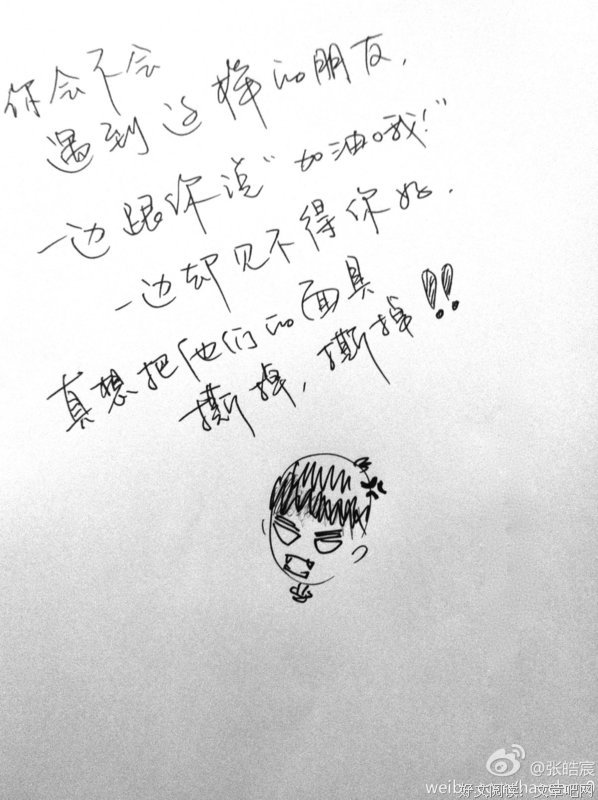 你会不会
遇到这样的朋友，
一边跟你说“加油哦！”
一边却见不得你好．
真想把他们的面具
撕掉，撕掉!!
@张皓宸
好文阅读：文章吧网